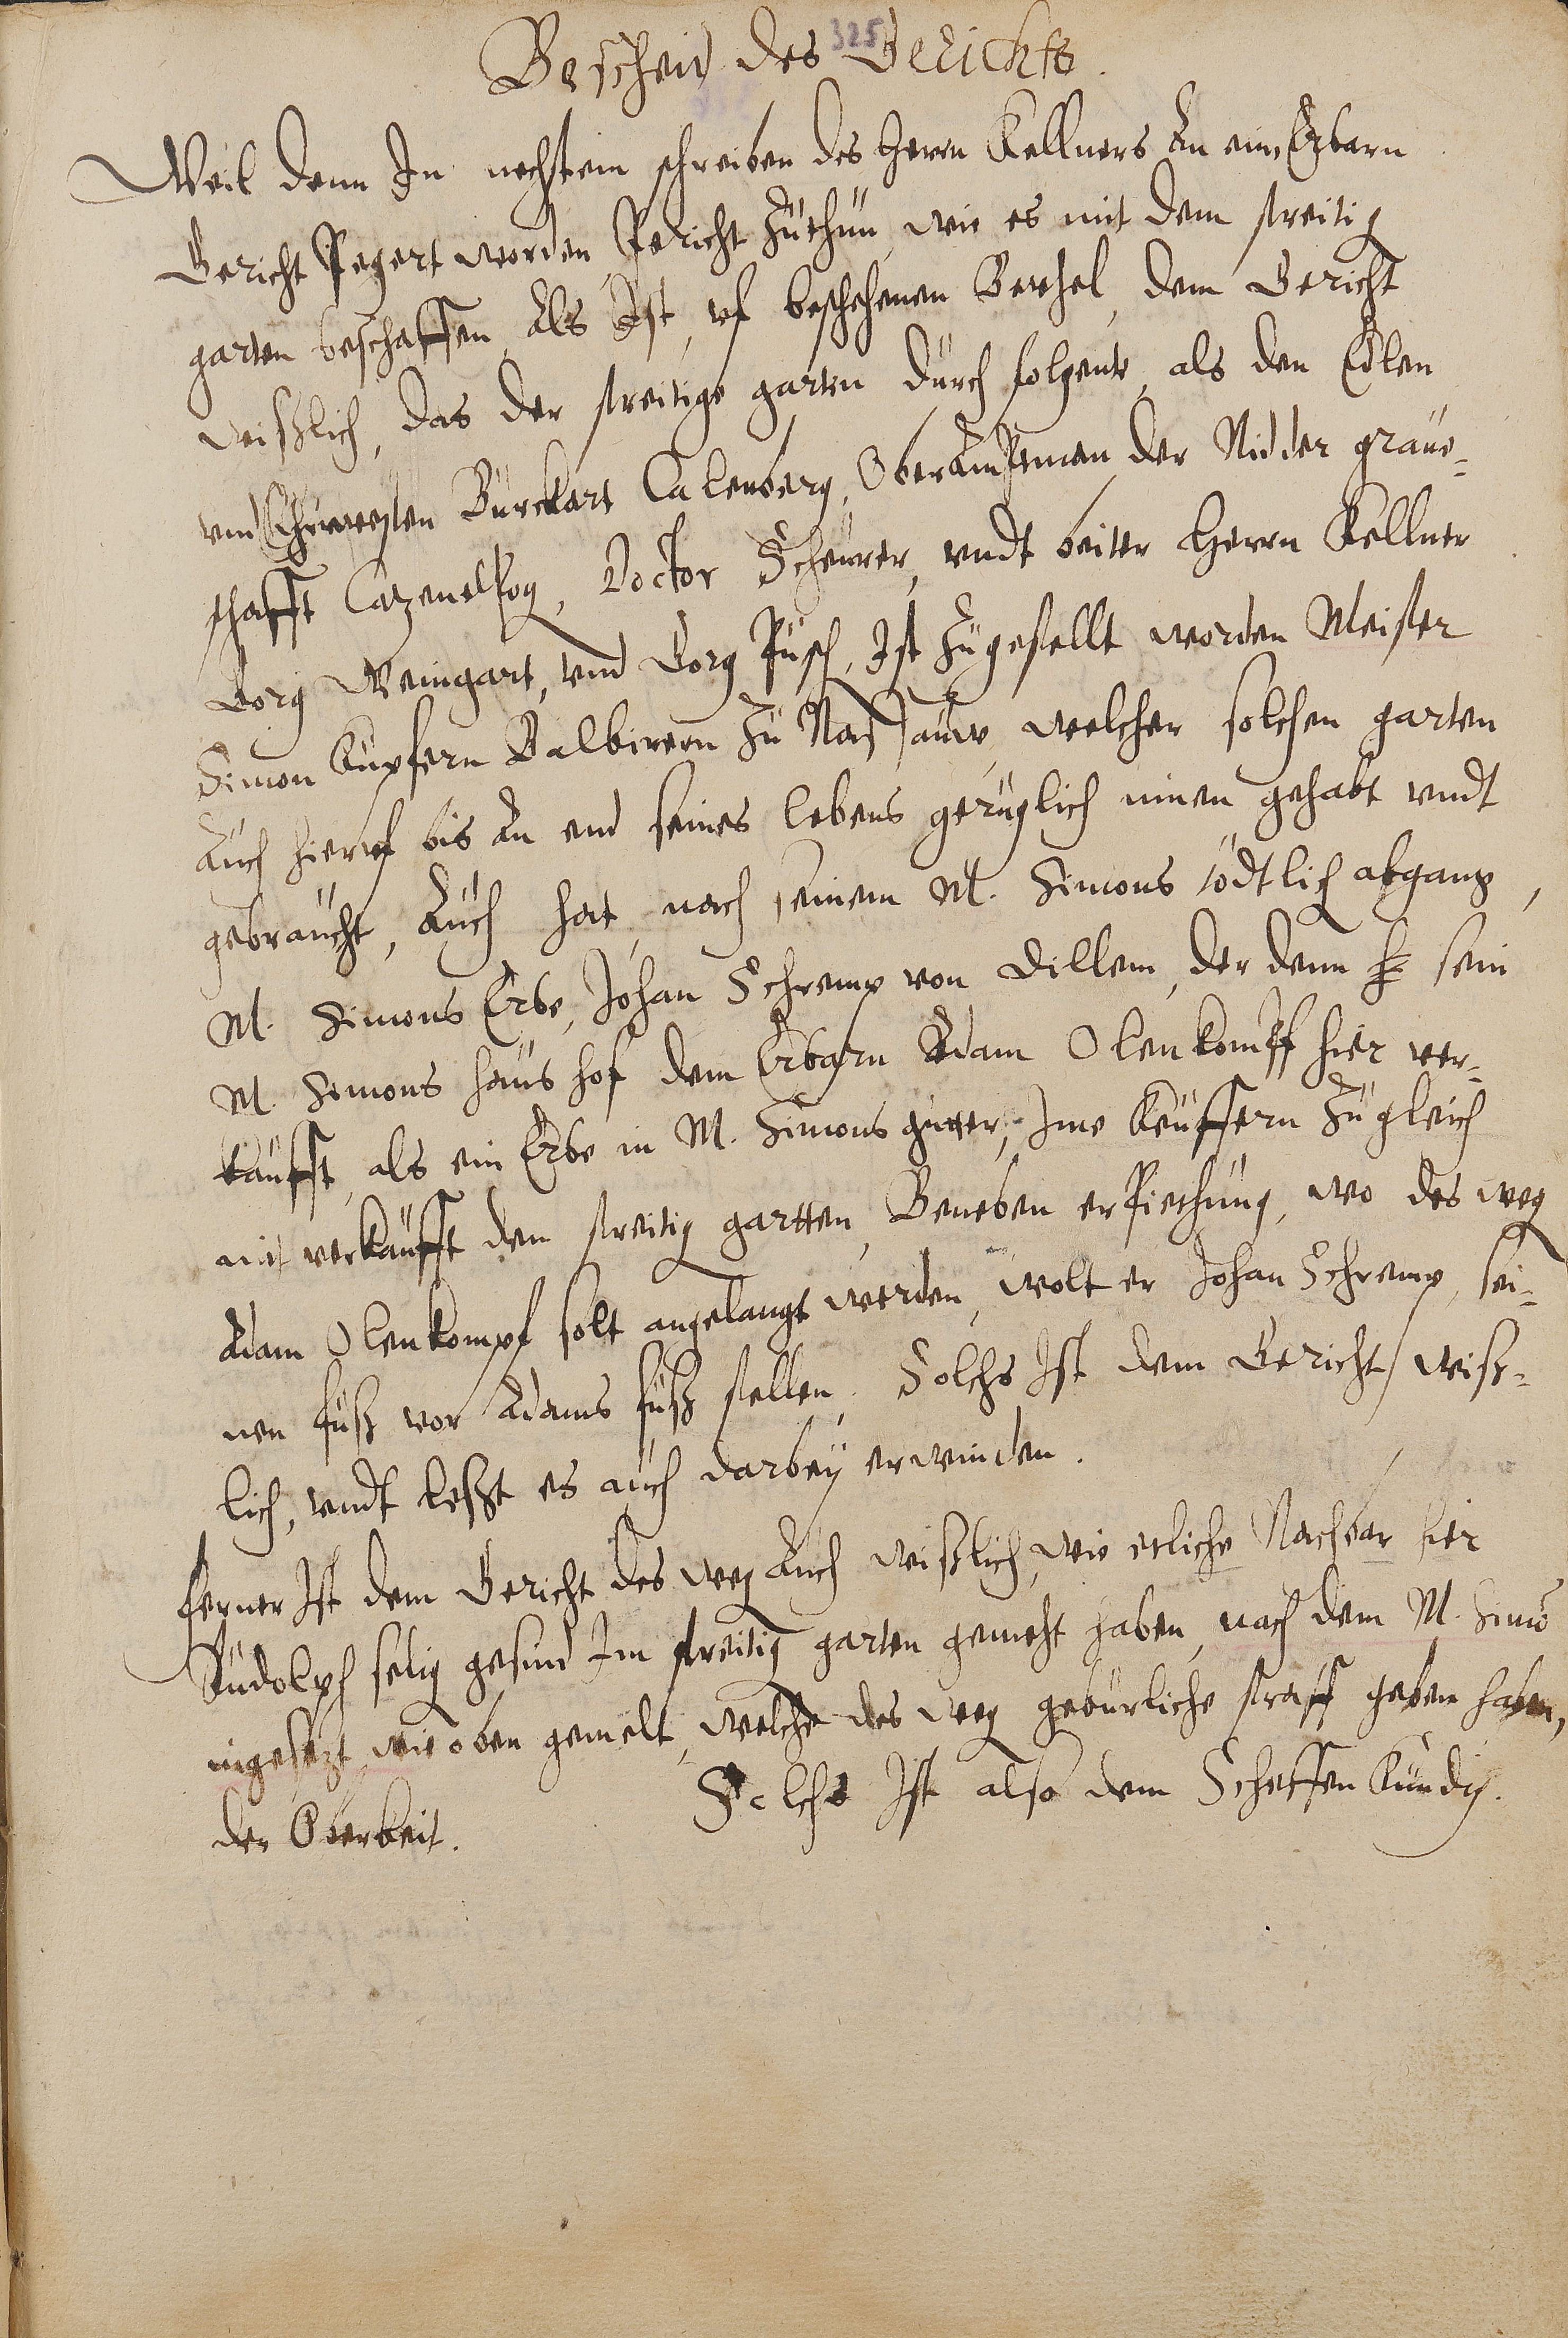 325
Bescheid des Gerichts.
Weil denn In nechstem schreiben des Herrn Kellners An ein Erbarn
Gericht Begert worden Bericht Zuthun, wie es mit dem streitig
garten beschaffen, Als Ist, vf beschehenen Bevehel, dem Gericht
wißlich, das der streitige garten durch folgente, als den Edlen
vnd Ehrnvesten Burckart Calenberg, OberAmptman der Nidder graue-
schafft Cazenelbog, Doctor Scheurer, vndt beiter Herrn Kellner
Gorg Weingart, vnd Gorg Busch, Ist Zugestellt worden Meister
Simon Kupfern Balbirern Zu Nassauw, welcher solchen garten
Auch hieruf bis An end seines lebens gerüglich innen gehabt vndt
gebraucht, Auch hat, nach seinem M. Simons tödtlich abgang,
M. Simons Erbe, Johan Schremp von Dillem, der denn sein
M. Simons haus hof dem Erbarn Adam Olenkompff hier ver-
kaufft, als ein Erbe in M. Simons gutter, Ime Keuffern Zugleich
mit verkaufft den streitig gartten, Beneben erBiethung, wo des weg
Adam Olenkompf solt angelangt werden, wolt er Johan Schremp, sei-
nen fuß vor Adams fuß stellen. Solchs Ist dem Gericht wiß-
lich, vndt leßt es auch darbey erwinden.
ferner Ist dem Gericht des weg Auch wißlich, wie etliche Nachbar hier
Rudolph selig gesind Im streitig garten gemeht haben, nach dem M. Simo
ingesezt, wie oben gemelt, welche des weg gebürliche straff geben haben,
der Oberkeit. Solchs Ist also dem Scheffen Kundig.